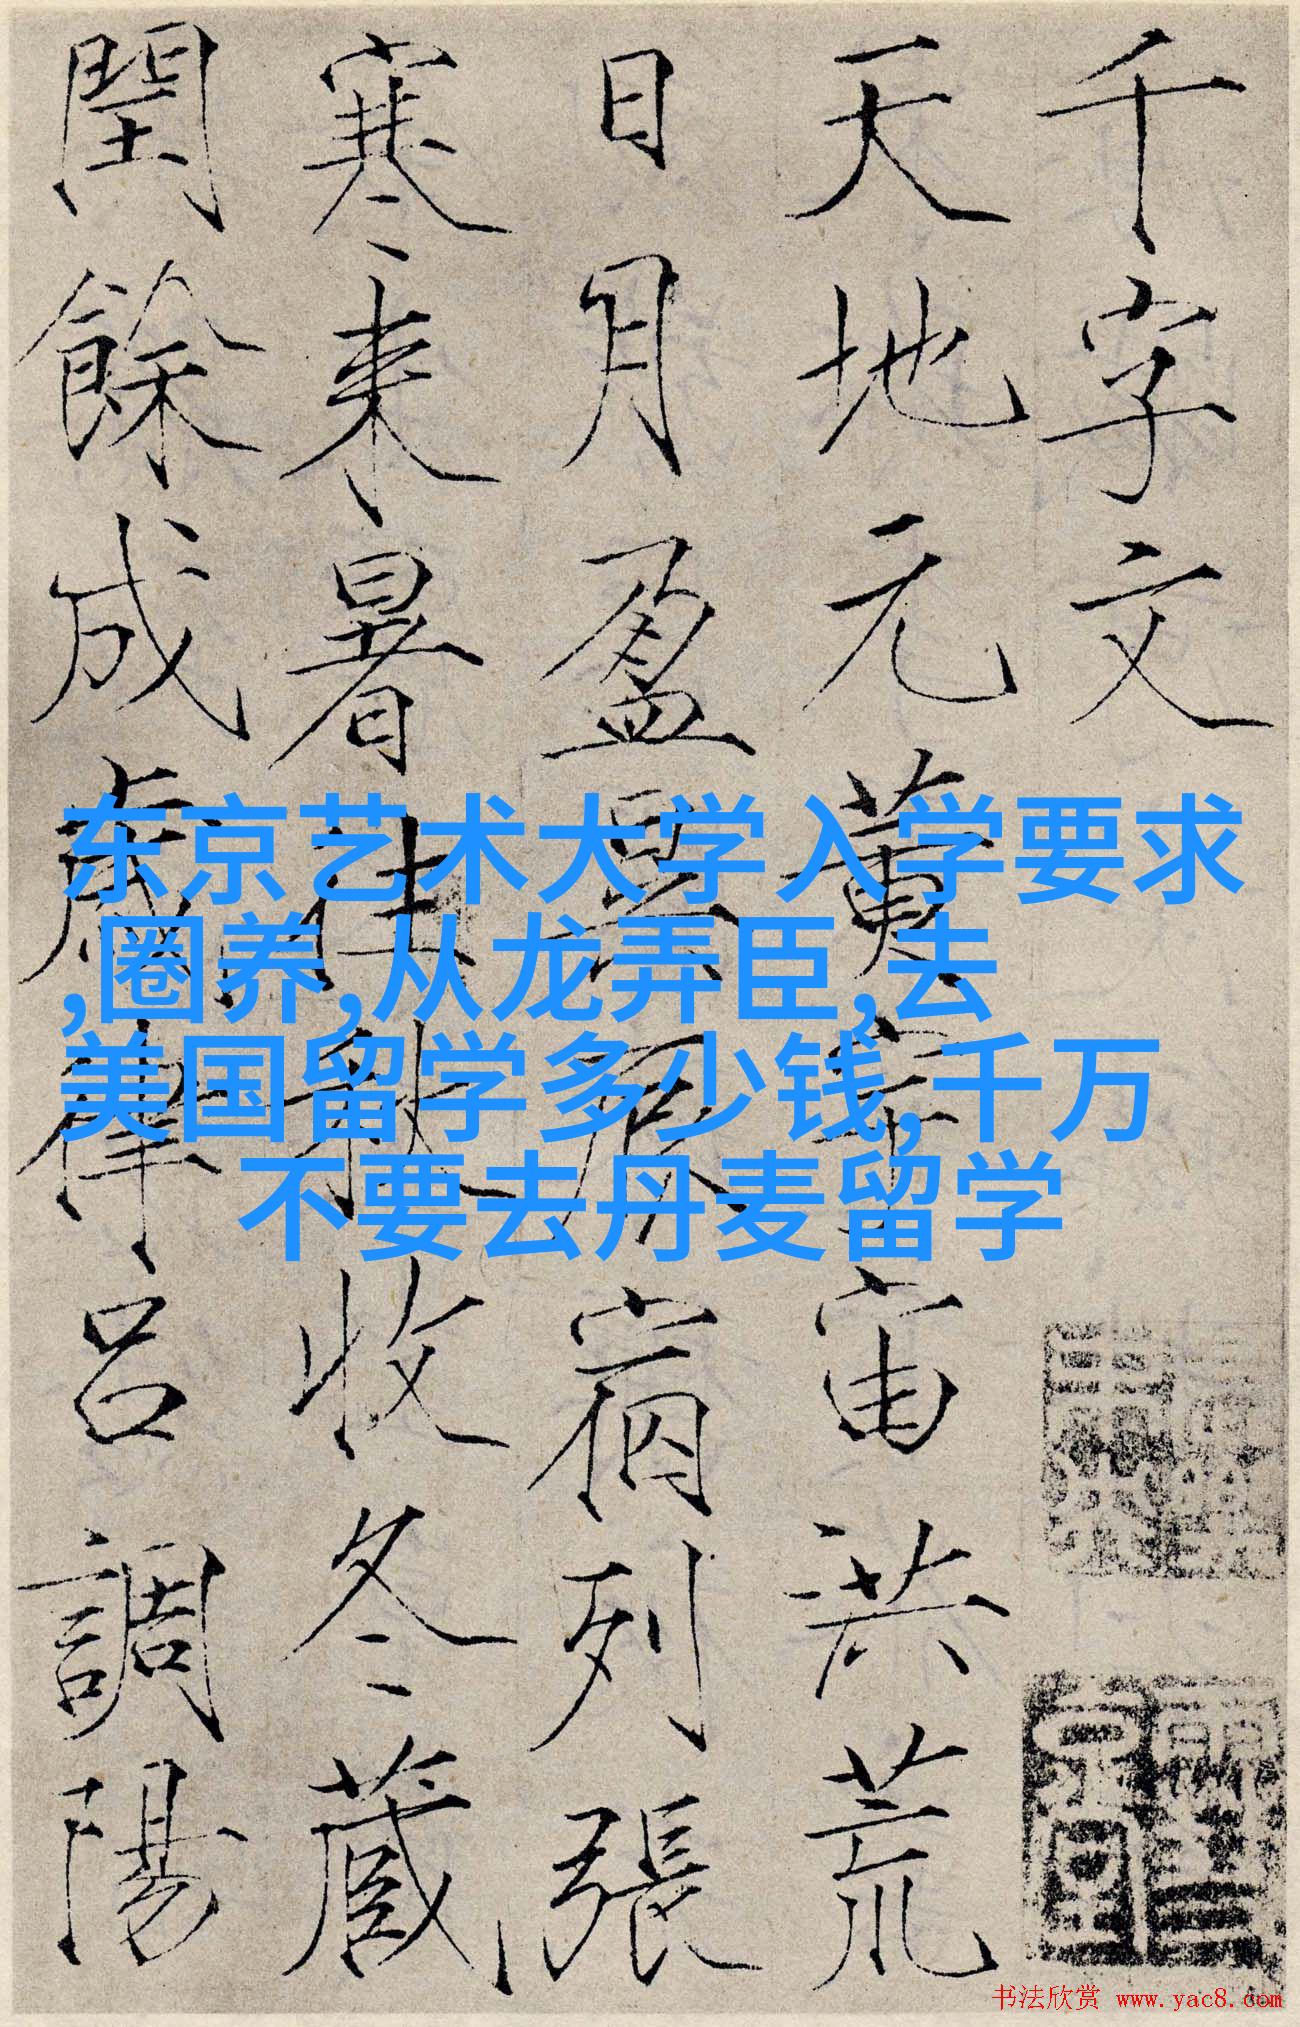 千字文
天地元黄宇宙洪荒
日月盈昃辰宿列張
寒来暑往秋收冬藏
閏餘成歲律吕調陽
东京艺术大学入学要求
,圈养,从龙弄臣,去
美国留学多少钱,千万
不要去丹麦留学
书法欣赏 www.yac8.com